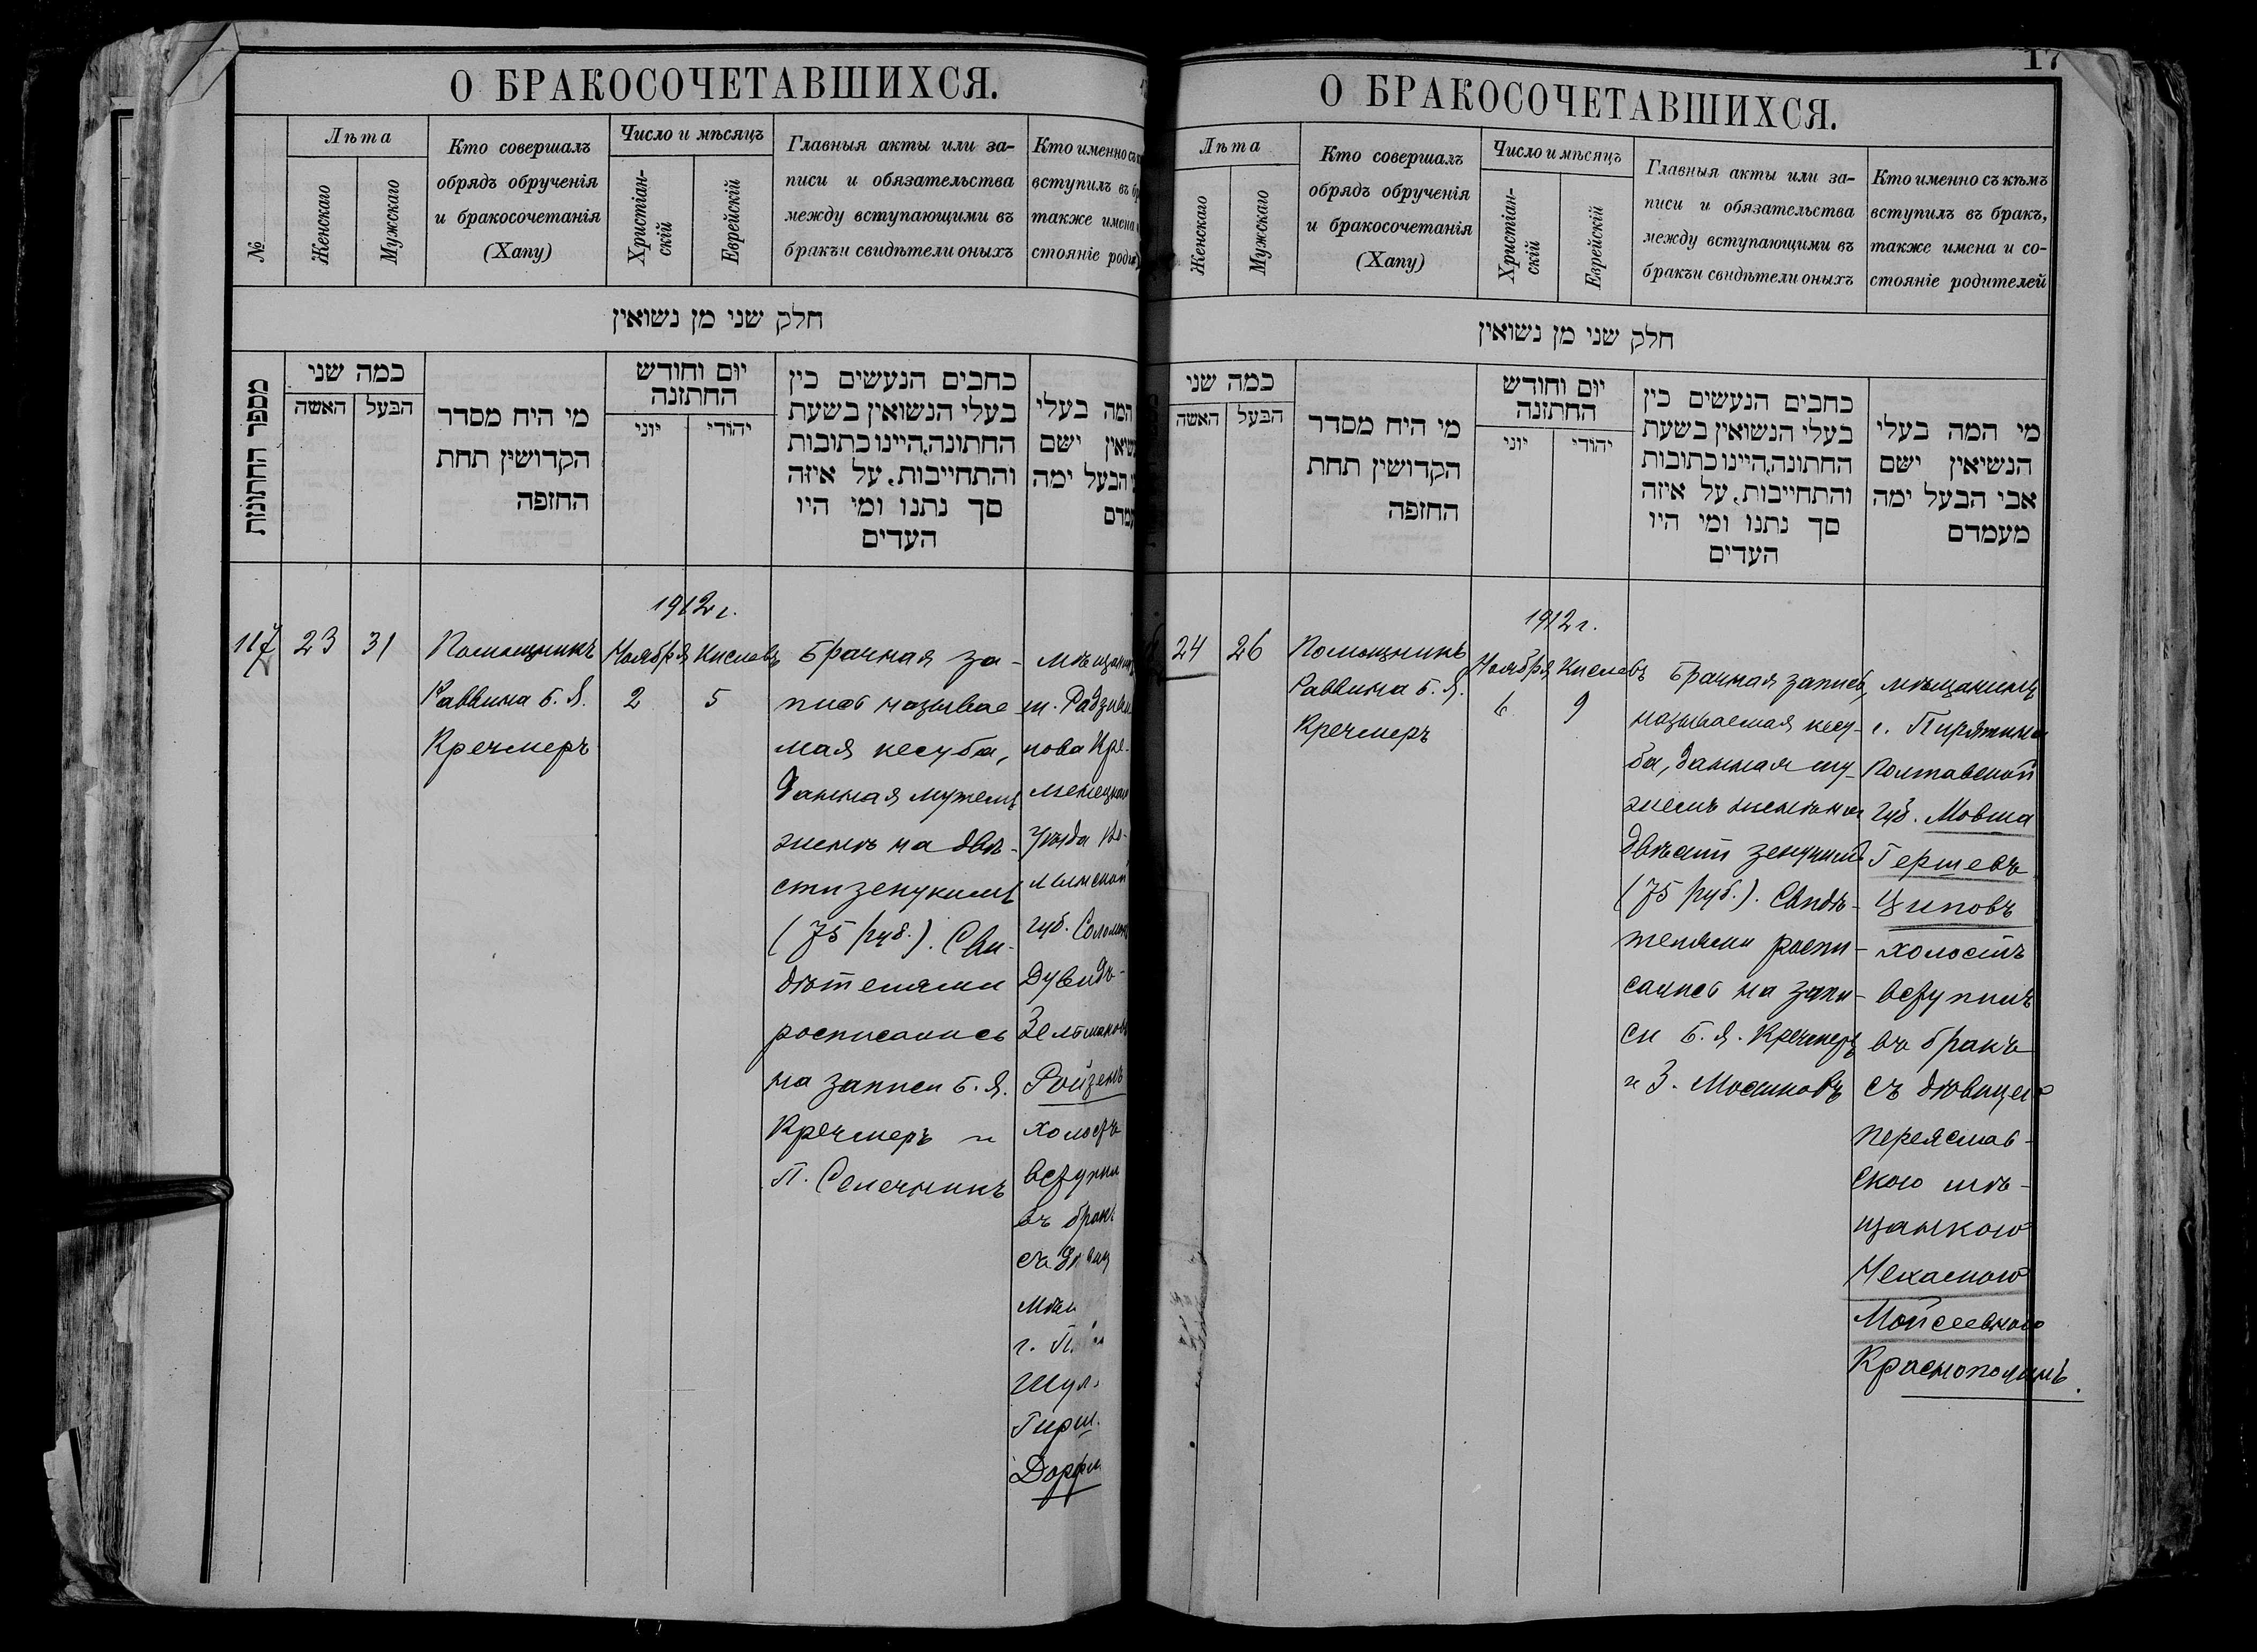 О БРАКОСОЧЕТАВШИХСЯ.
№
Лѣта
Женскаго
Мужскаго
Кто совершалъ
обрядъ обрученія
и бракосочетанія
(Хапу)
Число и мѣсяцъ
Христіан-
скій
Еврейскій
Главныя акты или за-
писи и обязательства
между вступающими въ
бракъ и свидѣтели оныхъ
Кто именно съ
вступилъ въ
также имена
стояніе
חלק שני מן נשואין
מספר החתונות
כמה שני
האשה
הבעל
מי היח מסדר
הקדושין תחת
החזפה
יום וחודש
החתזנה
יוני
יהודי
כחבים הנעשים כין
בעלי הנשואין בשעת
החתונה,היינו כתובות
והתחייבות, על איזה
סך נתנו ומי היו
העדים
המה בעלי
ישם
הבעל ימה
117
23
31
Помощникъ
Раввина Б. Я.
Кречмеръ
1912 г.
Ноября
2
Кислевъ
5
Брачная за-
пись называе
мая кесуба,
данная мужемъ
женѣ на двѣ-
сти зекукимъ
(75 руб.). Сви-
дѣтелями
росписались
на записи Б. Я.
Кречмеръ и
П. Селечникъ
м. Радзиви
лова Кре-
менецкаго
уѣзда Во-
лынской
губ. Соломонъ
Дувидъ-
Зельмановъ
Ройзенъ
холостъ
вступи
въ бракъ
съ
г. П.
Шул
Гирш
Дорф
17
О БРАКОСОЧЕТАВШИХСЯ.
Лѣта
Женскаго
Мужскаго
Кто совершалъ
обрядъ обрученія
и бракосочетанія
(Хапу)
Число и мѣсяцъ
Христіан-
скій
Еврейскій
Главныя акты или за-
писи и обязательства
между вступающими въ
бракъ и свидѣтели оныхъ
Кто именно съ кѣмъ
вступилъ въ бракъ,
также имена и со-
стояніе родителей
חלק שני מן נשואין
כמה שני
האשה
הבעל
מי היח מסדר
הקדושין תחת
החזפה
יום וחודש
החתזנה
יוני
יהודי
כחבים הנעשים כין
בעלי הנשואין בשעת
החתונה,היינו כתובות
והתחייבות, על איזה
סך נתנו ומי היו
העדים
מי המה בעלי
הנשיאין ישם
אבי הבעל ימה
מעמדם
24
26
Помощникъ
Раввина Б. Я.
Кречмеръ
1912 г.
Ноября
6
Кислевъ
9
Брачная запись,
называемая кесу-
ба, данная му-
жемъ женѣ на
двѣсти зекукимъ
(75 руб.). Свидѣ-
телями роспи-
сались на запи-
си Б. Я. Кречмеръ
и З. Мосинковъ
мѣщанинъ
г. Пирятина
Полтавской
губ. Мовша
Гершевъ
Циповъ
холостъ
вступилъ
въ бракъ
съ дѣвицею
переяслав-
скою мѣ-
щанкою
Нехамою
Мойсеевною
Краснополинъ.